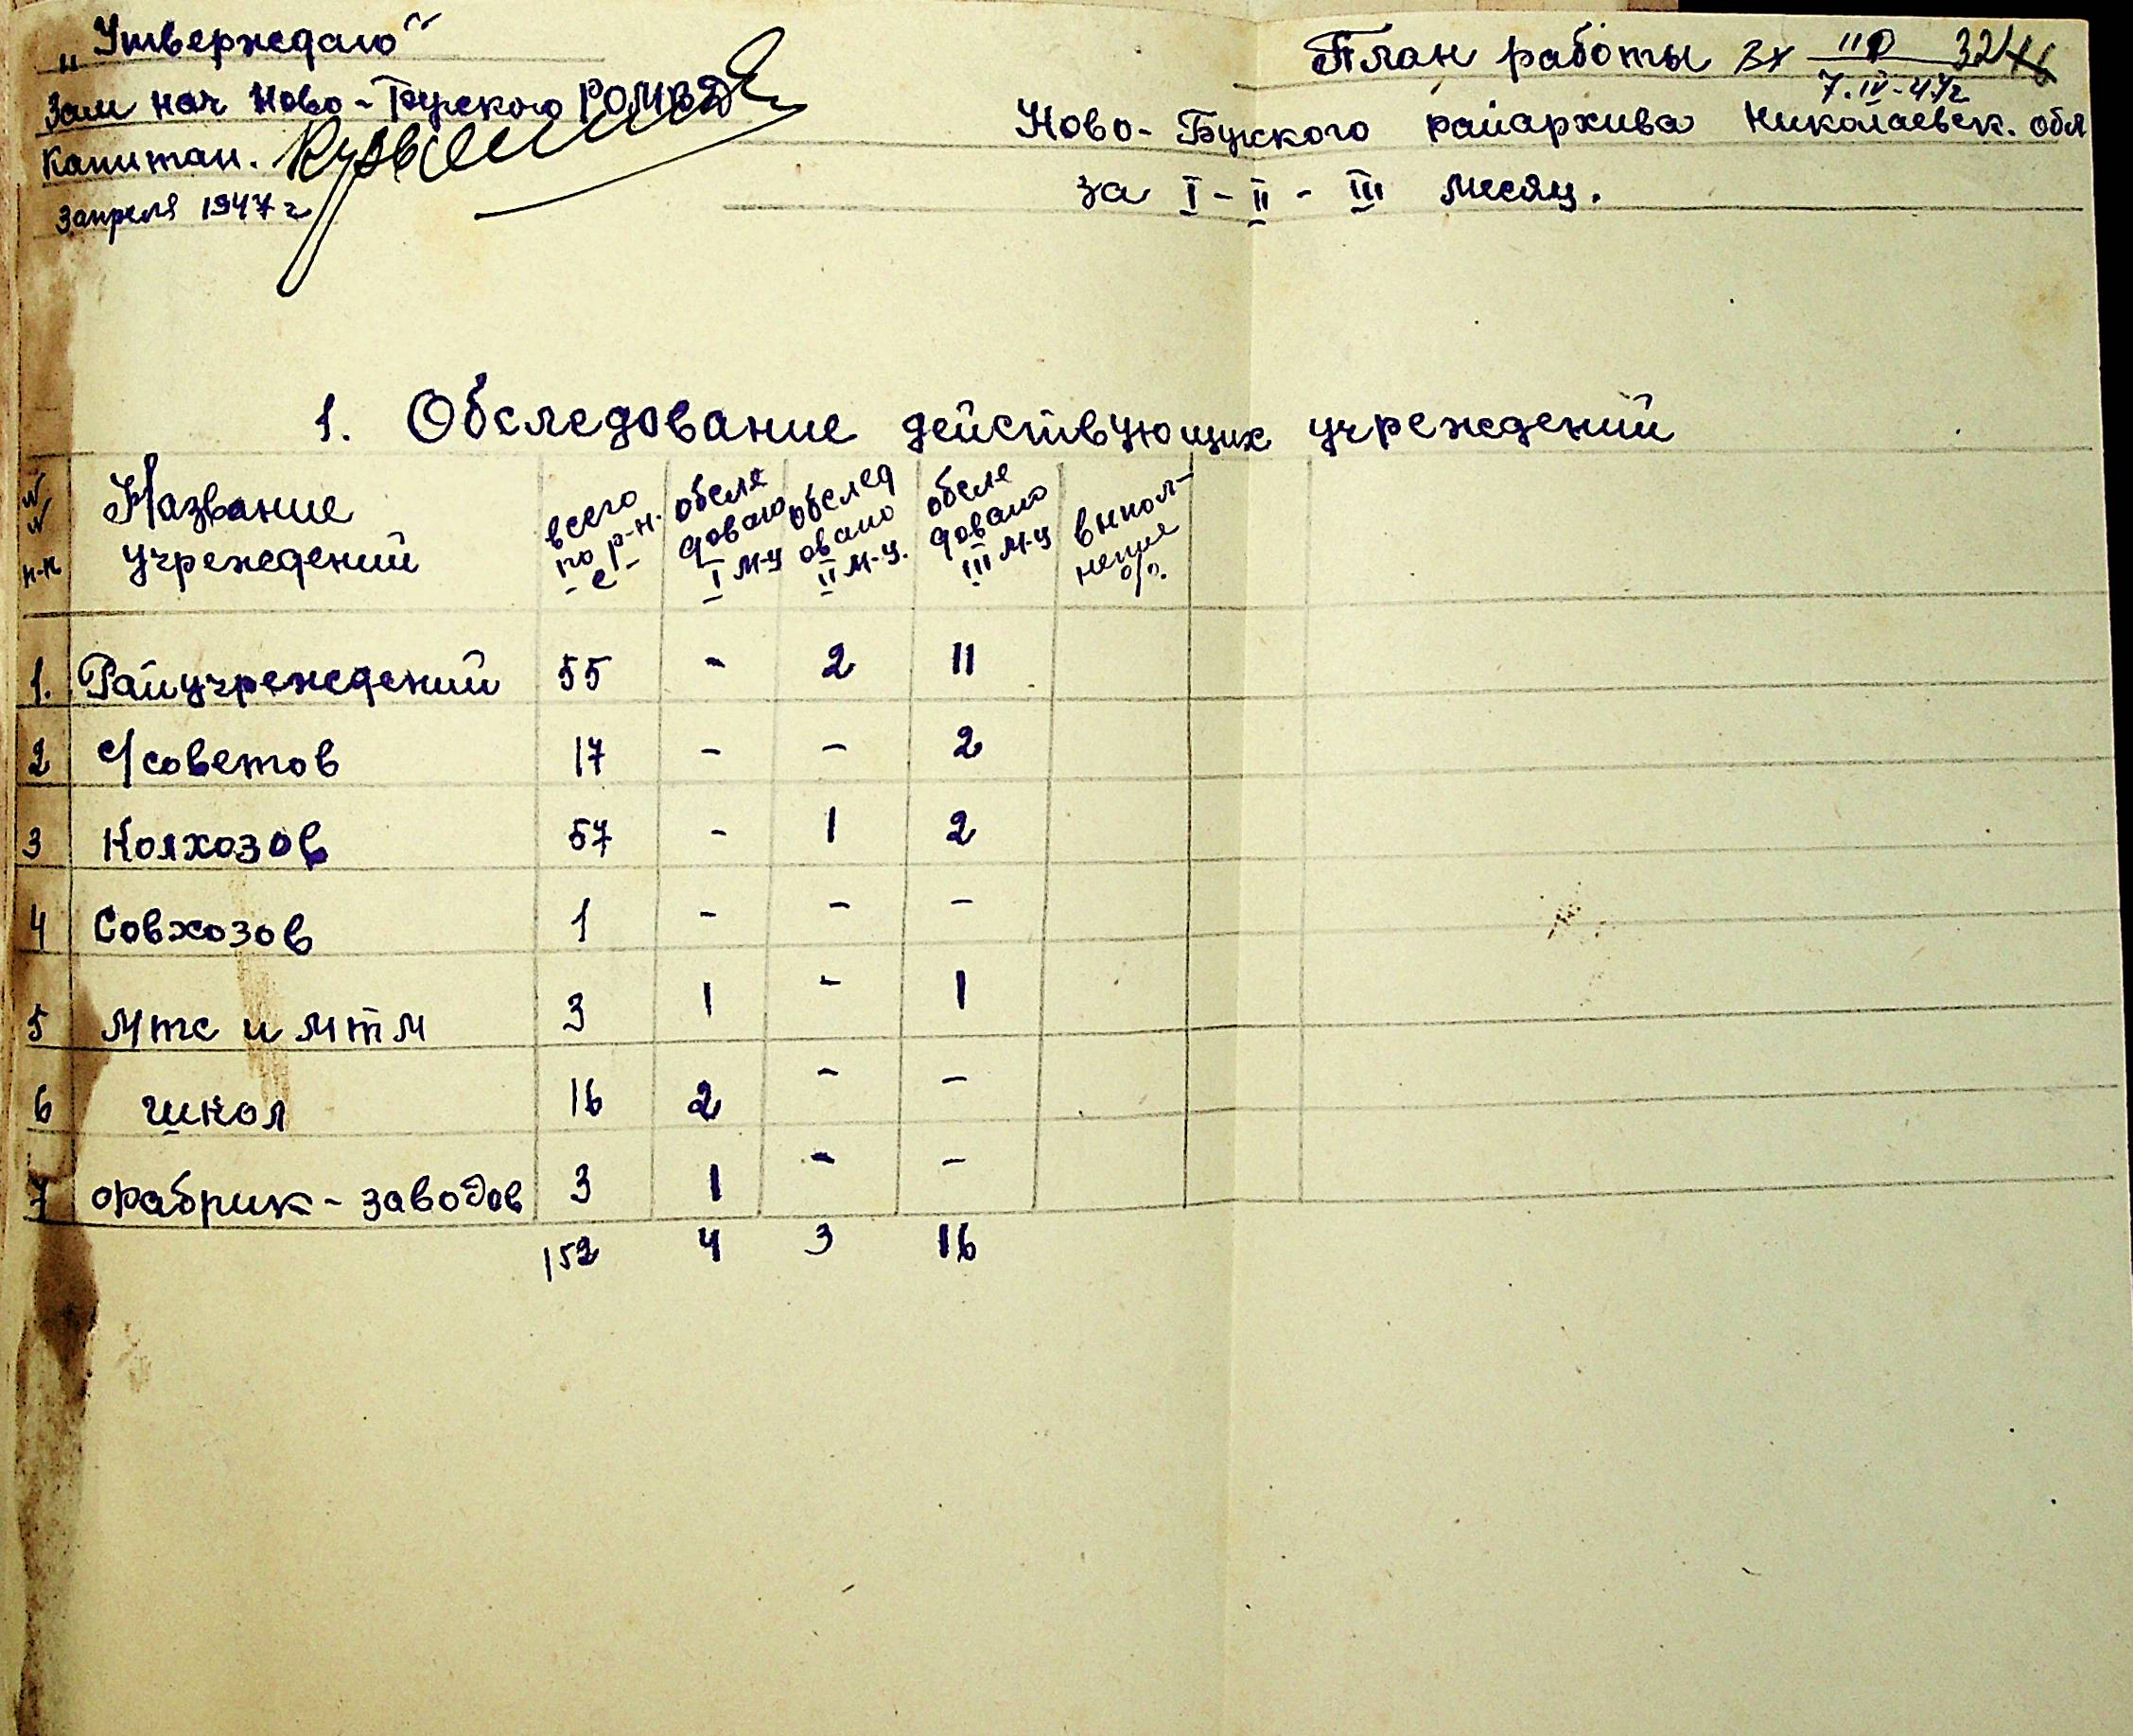 „Утверждаю“
Зам нач Ново-Бугского РОМВД
Капитан.
3 апреля 1947 г
План работы Вх
7.IV-47г
Ново-Бугского райархива Николаевск. обл
за I - II - III месяц.
1. Обследование действующих учреждений
NN н-п | Название учреждений | всего по р-н. -е- | обсле довано I м-ц | обслед овано II м-ц. | обсле довано III м-ц | выпол- нение %.
1. Райучреждений 55 - 2 11
2 С/советов 17 - - 2
3 Колхозов 57 - 1 2
4 Совхозов 1 - - -
5 Мтс и МТМ 3 1 - 1
6 школ 16 2 - -
7 Фабрик-заводов 3 1 - -
152 4 3 16